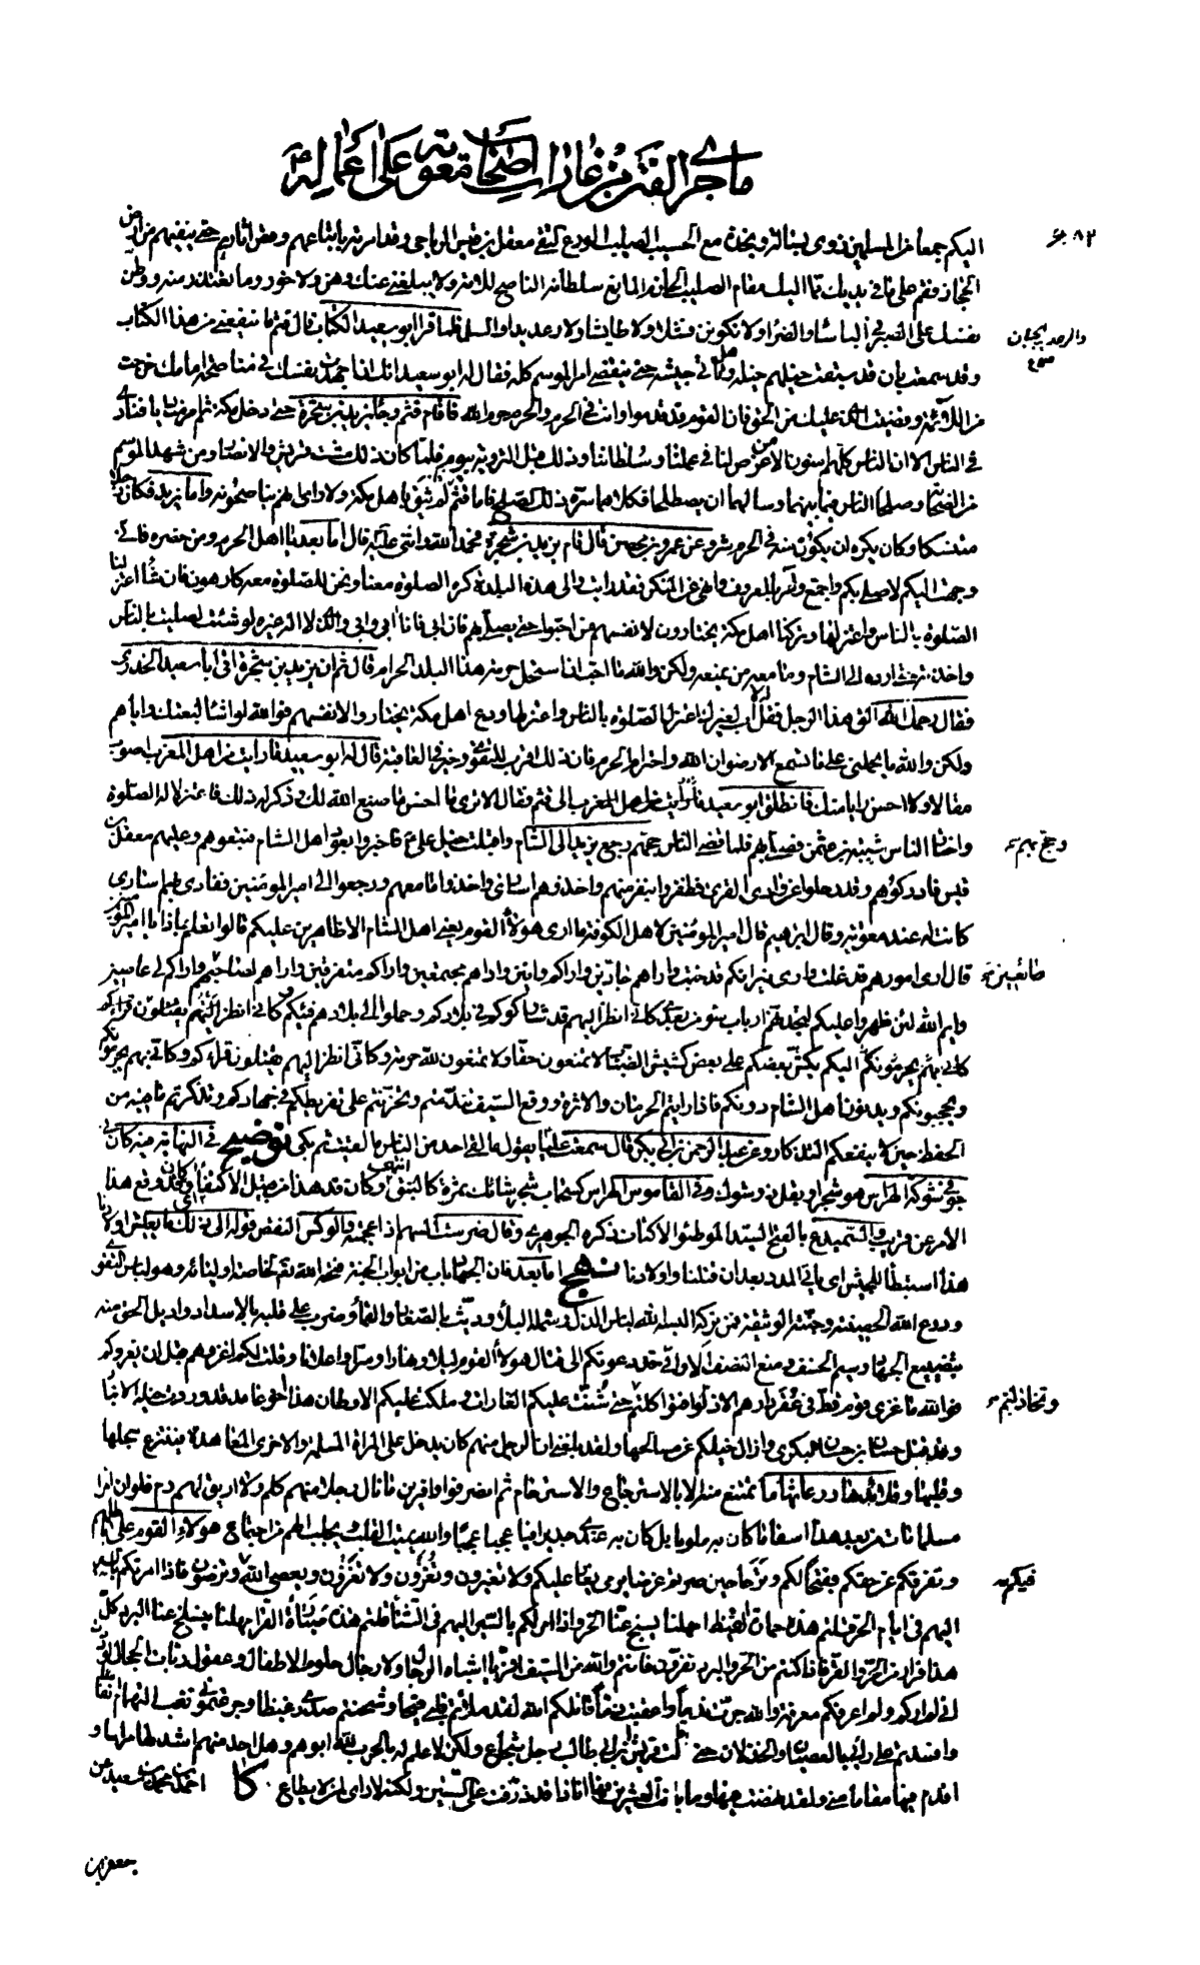 ما جرى من الفتن من غارات اصحاب معوية على اعماله ع
٨٢ اليكم جمعا من المسلمين ذوى بسالة ونجدة مع الحسيب الصليب الورع التقى معقل بن قيس الرياحى وقد امرته باتباعهم وقص اثارهم حتى ينفيهم من ارض
الحجاز فقم على ما فى يديك مما اليك مقام الصليب الحازم المانع سلطانه الناصح للامة ولا يبلغنى عنك وهن ولا خور وما تعتذر منه ووطن
نفسك على الصبر فى البأساء والضراء ولا تكونن فشلا ولا طائشا ولا رعديدا والسلم فلما قرا ابو سعيد الكتاب قال قثم ما ينفعنى من هذا الكتاب
وقد سمعت بان قد سبقت خيلهم خيله وهل ياتى جيشه حتى ينقضى امر الموسم كله فقال له ابو سعيد انك ان اجهدت نفسك فى مناصحة امامك خرجت
من اللائمة وقضيت الذى عليك من الحق فان القوم قد قدموا وانت فى الحرم والحرم حرم الله فاقام قثم وجاء يزيد بن شجرة حتى دخل مكة ثم امر مناديا فنادى
فى الناس الا ان الناس كلهم امنون الا من عرض لنا فى عملنا وسلطاننا وذلك قبل التروية بيوم فلما كان ذلك مشت قريش والانصار ومن شهد الموسم
من الصحابة وصلحاء الناس فيما بينهما وسالهما ان يصطلحا فكلاهما سره ذلك الصلح فاما قثم فانه لم يثق باهل مكة ولا راى انهم يناصحونه واما يزيد فكان رجلا
متنسكا وكان يكره ان يكون منه فى الحرم شر وعن عمرو بن محصن قال قام يزيد بن شجرة فحمد الله واثنى عليه ثم قال اما بعد يا اهل الحرم ومن حضره فانى
وجهت اليكم لاصلى بكم واجمع وآمر بالمعروف وانهى عن المنكر فقد رايت والى هذه البلدة كره الصلوة معنا ونحن للصلوة معه كارهون فان شاء اعتزلنا
الصلوة بالناس واعتزلها وتركنا اهل مكة يختارون لانفسهم من احبوا حتى يصلى بهم فان ابى فانا ابى وابى والذى لا اله غيره لو شئت لصليت بالناس
واخذته حتى ارده الى الشام وما معه من يمنعه ولكن والله ما احب ان استحل حرمة هذا البلد الحرام قال ثم ان يزيد بن شجرة اتى ابا سعيد الخدرى
فقال رحمك الله الق هذا الرجل فقل له لا اب لغيرك اعتزل الصلوة بالناس واعتزلها ودع اهل مكة يختاروا لانفسهم فوالله لو اشاء لبعتك واياهم
ولكن والله ما يحملنى على ما تسمع الا رضوان الله واحترام الحرم فان ذلك اقرب للتقوى وخير فى العاقبة قال له ابو سعيد ما رايت من اهل المغرب اصوب
مقالا ولا احسن رايا منك فانطلق ابو سعيد الى قثم فقال الا ترى ما احسن ما صنع الله لك وذكر له ذلك فاعتزلا الصلوة
واختار الناس شيبة بن عثمن فصلى بهم فلما قضى الناس حجهم رجع يزيد الى الشام واقبلت خيل على ع فاخبروا بعود اهل الشام فتبعوهم وعليهم معقل بن
قيس فادركوهم وقد رحلوا عن وادى القرى فظفروا بنفر منهم واخذوهم اسارى واخذوا ما معهم ورجعوا الى امير المؤمنين ففادى بهم اسارى
كانت له عند معوية وقال ابرهيم قال امير المؤمنين لاهل الكوفة ما ارى هؤلاء القوم يعنى اهل الشام الا ظاهرين عليكم قالوا تعلم بماذا يا امير المؤمنين
قال ارى امورهم قد علت وارى نيرانكم قد خبت واراهم جادين واراكم وانين واراهم مجتمعين واراكم متفرقين واراهم لصاحبهم طائعين واراكم لى عاصين
وايم الله لئن ظهروا عليكم لتجدنهم ارباب سوء من بعدى لكم كانى انظر اليهم قد شاركوكم فى بلادكم وحملوا الى بلادهم فيئكم وكانى انظر اليكم يقتلون قراءكم
كانى بهم يحرمونكم اليكم يكش بعضكم على بعض كشيش الضباب لا تمنعون حقا ولا تمنعون لله حرمة وكانى انظر اليهم يقتلون قراءكم وكانى بهم يحرمونكم
ويحجبونكم ويدنون اهل الشام دونكم فاذا رايتم الحرمان والاثرة ووقع السيف تندمتم وتحزنتم على تفريطكم فى جهادكم وتذكرتم ما فيه من
الحفظ حين لا ينفعكم التذكار وعن عبد الرحمن بن ابى بكرة قال سمعت عليا يقول ما لقى احد من الناس ما لقيت ثم بكى توضيح فى النهاية فيه كان
جوفى شوكة الهراس هو شجر او بقل ذو شوك وفى القاموس الهراس كسحاب شجر شائك ثمره كالنبق انتهى وكان قد هذا من قبيل الاكتفاء اى كان قد وقع هذا
الامر عن قريب والسميدع بالفتح السيد الموطئ الاكناف ذكره الجوهرى وقال ضرست السهم اذا عجمته والوكس النقص قوله الى ذلك ما يعيش اولادنا
هذا استبطاء للجيش اى ياتى المدد بعد ان قتلنا واولادنا نهج اما بعد فان الجهاد باب من ابواب الجنة فتحه الله تعم لخاصة اوليائه وهو لباس التقوى
ودرع الله الحصينة وجنته الوثيقة فمن تركه البسه الله لباس الذل وشمله البلاء وديث بالصغار والقماء وضرب على قلبه بالاسداد واديل الحق منه
بتضييع الجهاد وسيم الخسف ومنع النصف الا وانى قد دعوتكم الى قتال هؤلاء القوم ليلا ونهارا وسرا واعلانا وقلت لكم اغزوهم قبل ان يغزوكم
فوالله ما غزى قوم قط فى عقر دارهم الا ذلوا فتواكلتم وتخاذلتم حتى شنت عليكم الغارات وملكت عليكم الاوطان هذا اخو غامد قد وردت خيله الانبار
وقد قتل حسان بن حسان البكرى وازال خيلكم عن مسالحها ولقد بلغنى ان الرجل منهم كان يدخل على المراة المسلمة والاخرى المعاهدة فينتزع حجلها
وقلبها وقلائدها ورعاثها ما تمتنع منه الا بالاسترجاع والاسترحام ثم انصرفوا وافرين ما نال رجلا منهم كلم ولا اريق لهم دم فلو ان امرا
مسلما مات من بعد هذا اسفا ما كان به ملوما بل كان به عندى جديرا فيا عجبا عجبا والله يميت القلب ويجلب الهم من اجتماع هؤلاء القوم على باطلهم
وتفرقكم عن حقكم فقبحا لكم وترحا حين صرتم غرضا يرمى يغار عليكم ولا تغيرون وتغزون ولا تغزون ويعصى الله وترضون فاذا امرتكم بالسير
اليهم فى ايام الحر قلتم هذه حمارة القيظ امهلنا يسبخ عنا الحر واذا امرتكم بالسير اليهم فى الشتاء قلتم هذه صبارة القر امهلنا ينسلخ عنا البرد كل
هذا فرارا من الحر والقر فاذا كنتم من الحر والبرد تفرون فانتم والله من السيف افر يا اشباه الرجال ولا رجال حلوم الاطفال وعقول ربات الحجال لوددت
انى لم اركم ولم اعرفكم معرفة والله جرت ندما واعقبت سدما قاتلكم الله لقد ملاتم قلبى قيحا وشحنتم صدرى غيظا وجرعتمونى نغب التهمام انفاسا
وافسدتم على رايى بالعصيان والخذلان حتى قالت قريش ان ابن ابى طالب رجل شجاع ولكن لا علم له بالحرب لله ابوهم وهل احد منهم اشد لها مراسا و
اقدم فيها مقاما منى ولقد نهضت فيها وما بلغت العشرين وها انا ذا قد ذرفت على الستين ولكنه لا راى لمن لا يطاع. كا احمد بن محمد بن سعيد عن
جعفر بن